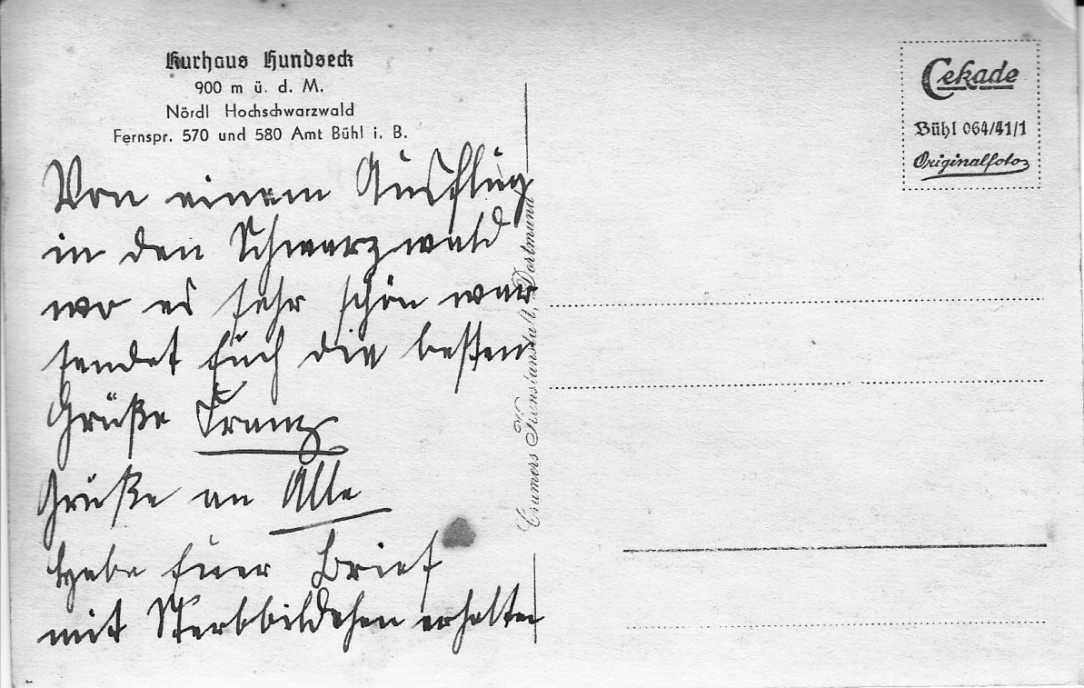 Kurhaus Hundseck
900 m ü. d. M.
Nördl Hochschwarzwald
Fernspr. 570 und 580 Amt Bühl i. B.
Von einem Ausflug
in den Schwarzwald
wo es sehr schön war
sendet Euch die besten
Grüße Franz
Grüße an Alle
Habe Euer Brief
mit Sterbbildchen erhalten
Cramers Kunstanstalt, Dortmund
Cekade
Bühl 064/41/1
Originalfoto